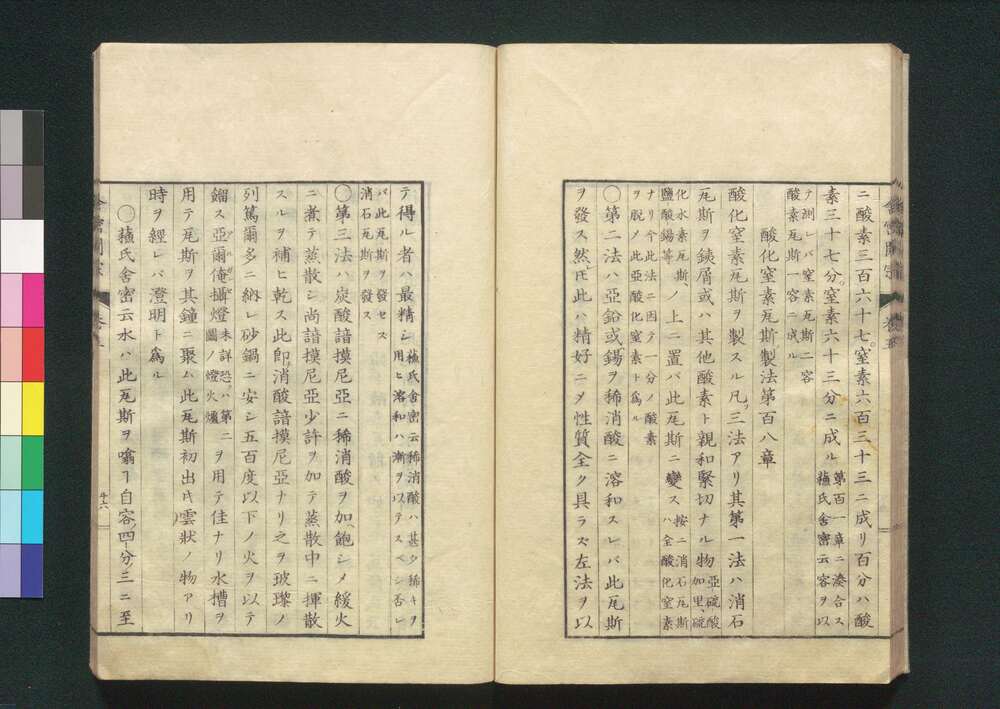 ニ酸素三百六十七。窒素六百三十三ニ成リ百分ハ酸
素三十七分。窒素六十三分ニ成ル 第百一章ニ湊合ス
蘓氏舎密云容ヲ以
テ測レバ窒素瓦斯二容
酸素瓦斯一容ニ成ル
酸化窒素瓦斯製法第百八章
酸化窒素瓦斯ヲ製スル凡ソ三法アリ其第一法ハ消石
瓦斯ヲ銕屑或ハ其他酸素ト親和緊切ナル物 亞硫酸
加里、硫
化水素瓦斯、
鹽酸錫等 ノ上ニ置バ此瓦斯ニ變ス 按ニ消石瓦斯
ハ全酸化窒素
ナリ今此法ニ因テ一分ノ酸素
ヲ脱メ此亞酸化窒素ト爲ル
〇第二法ハ亞鉛或錫ヲ稀消酸ニ溶和スレバ此瓦斯
ヲ發ス然𪜈此ハ精好ニメ性質全ク具ラズ左法ヲ以
テ得ル者ハ最精シ 蘓氏舎密云稀消酸ハ甚少稀キヲ
用ヒ溶和ハ漸ヲ以テスベシ否レ
バ此瓦斯ヲ發セズ
消石瓦斯ヲ發ス
〇第三法ハ炭酸諳摸尼亞ニ稀消酸ヲ加、飽シメ緩火
ニ煮テ蒸散シ尚諳摸尼亞少許ヲ加テ蒸散中ニ揮散
スルヲ補ヒ乾ス此即消酸諳摸尼亞ナリ之ヲ玻瓈ノ
列篤爾多ニ納レ砂鍋ニ安シ五百度以下ノ火ヲ以テ
鎦ス亞爾俺攝燈 未詳恐ハ第二
圖ノ燈火爐 ヲ用テ佳ナリ水槽ヲ
用テ瓦斯ヲ其鐘ニ聚ム此瓦斯初出𪜀雲狀ノ物アリ
時ヲ經レバ澄明ト爲ル
〇蘓氏舎密云水ハ此瓦斯ヲ噏ヿ自容ノ四分ノ三ニ至